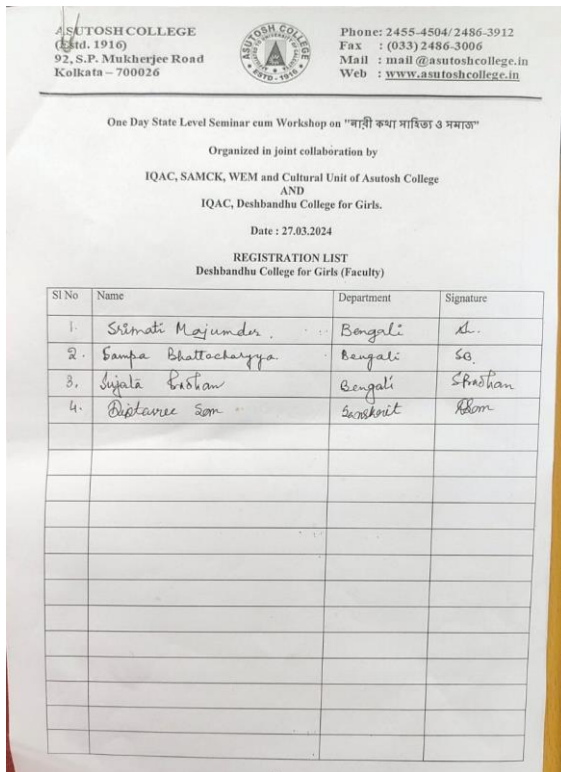 ASUTOSH COLLEGE
(Estd. 1916)
92, S.P. Mukherjee Road
Kolkata – 700026
ASUTOSH COLLEGE
ESTD - 1916
Phone: 2455-4504/ 2486-3912
Fax : (033) 2486-3006
Mail : mail @asutoshcollege.in
Web : www.asutoshcollege.in
One Day State Level Seminar cum Workshop on "নারী কথা সাহিত্য ও সমাজ"
Organized in joint collaboration by
IQAC, SAMCK, WEM and Cultural Unit of Asutosh College
AND
IQAC, Deshbandhu College for Girls.
Date : 27.03.2024
REGISTRATION LIST
Deshbandhu College for Girls (Faculty)
Sl No Name Department Signature
1. Srimati Majumder. Bengali
2. Sampa Bhattacharyya. Bengali SB.
3. Sujata Pradhan Bengali SPradhan
4. Diptasree Som Sanskrit DSom